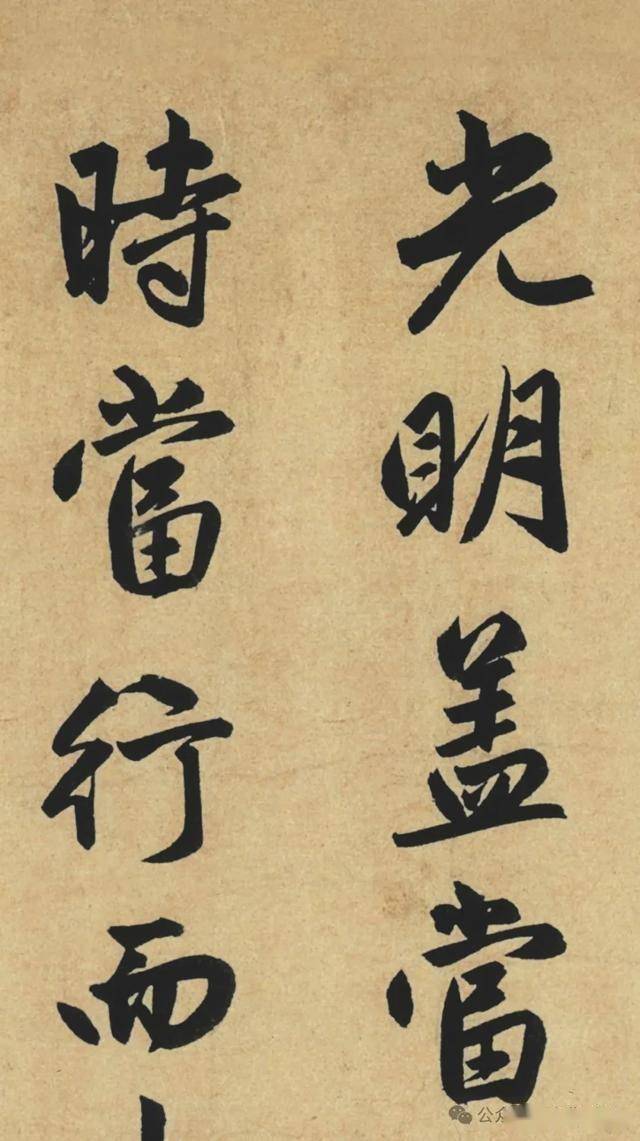 光明盖當
時當行而
公众